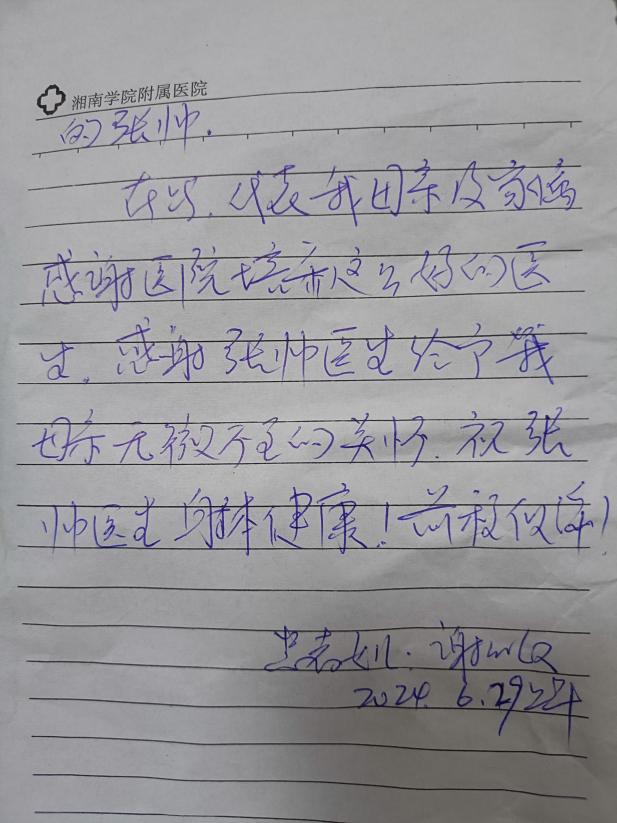 湘南学院附属医院
的张帅.
在此,代表我母亲及家属
感谢医院培养这么好的医
生,感谢张帅医生给予我
母亲无微不至的关怀.祝张
帅医生身体健康!前程似锦!
患者女儿:谢
2024.6.29